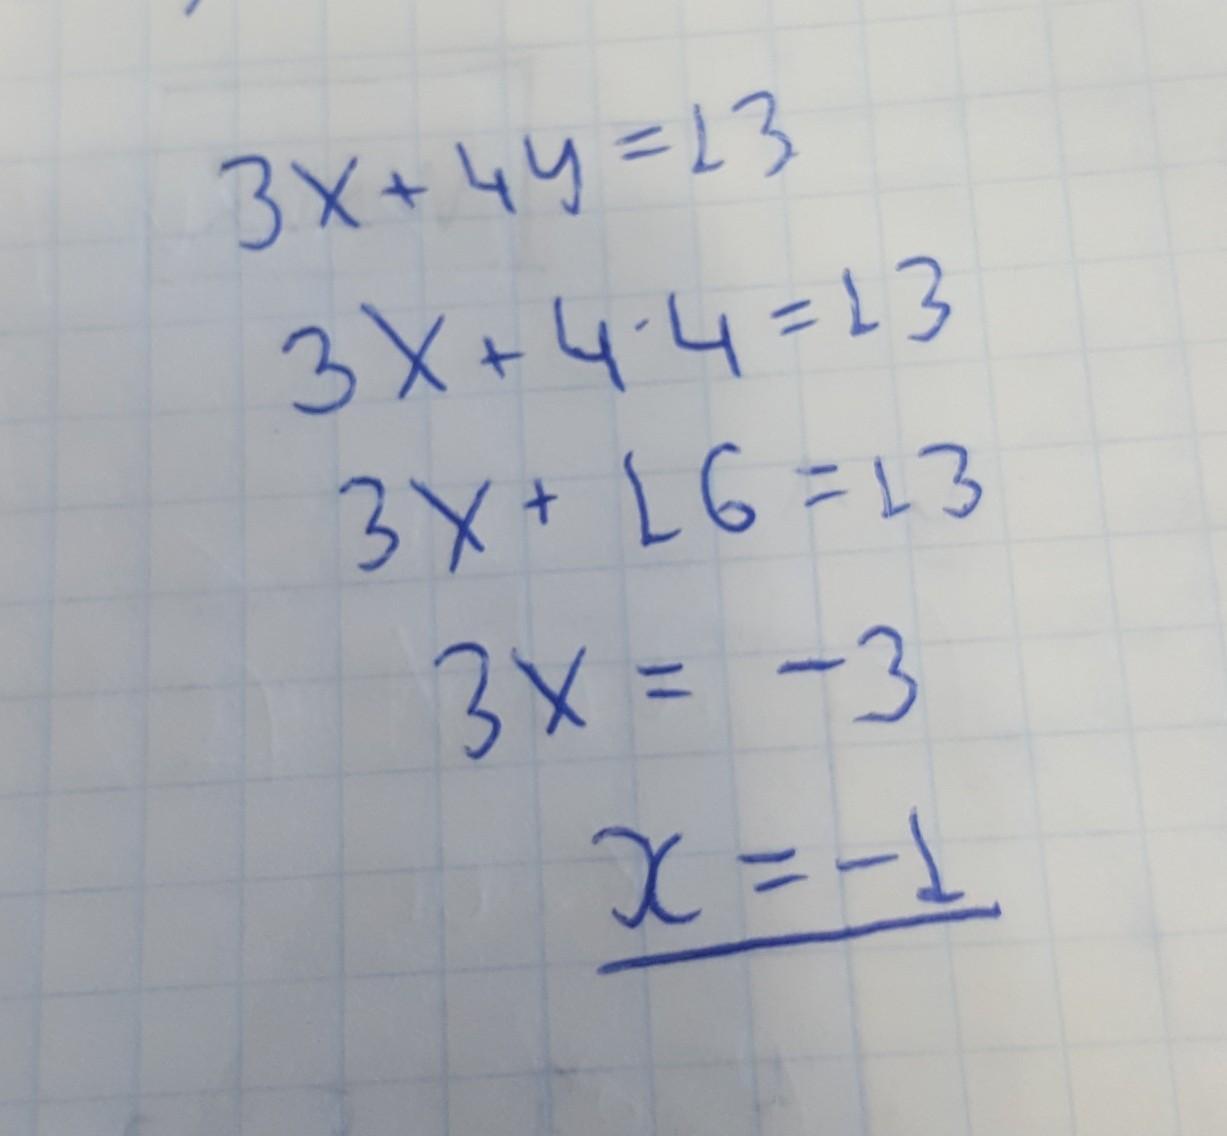 3x + 4y = 13
3x + 4 · 4 = 13
3x + 16 = 13
3x = -3
x = -1